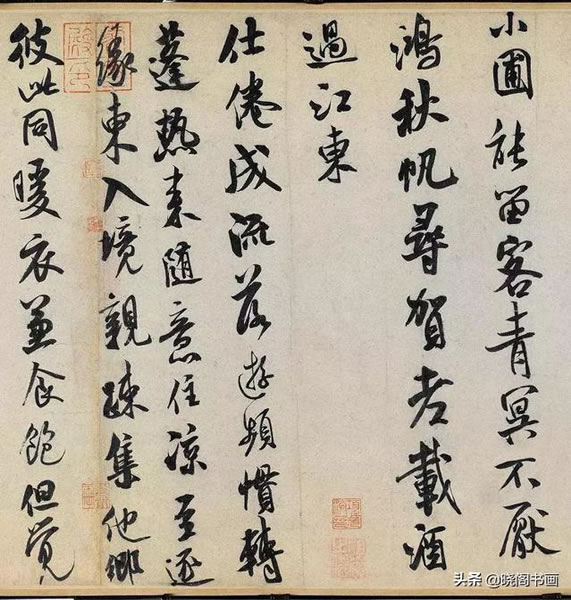 小圃能留客青冥不厭
鴻秋帆尋賀老載酒
過江東
仕倦成流落遊頻慣轉
蓬熱來随意住涼至逐
緣東入境親疎集他鄉
彼此同暖衣兼食飽但覺
头条 @晓阁书画